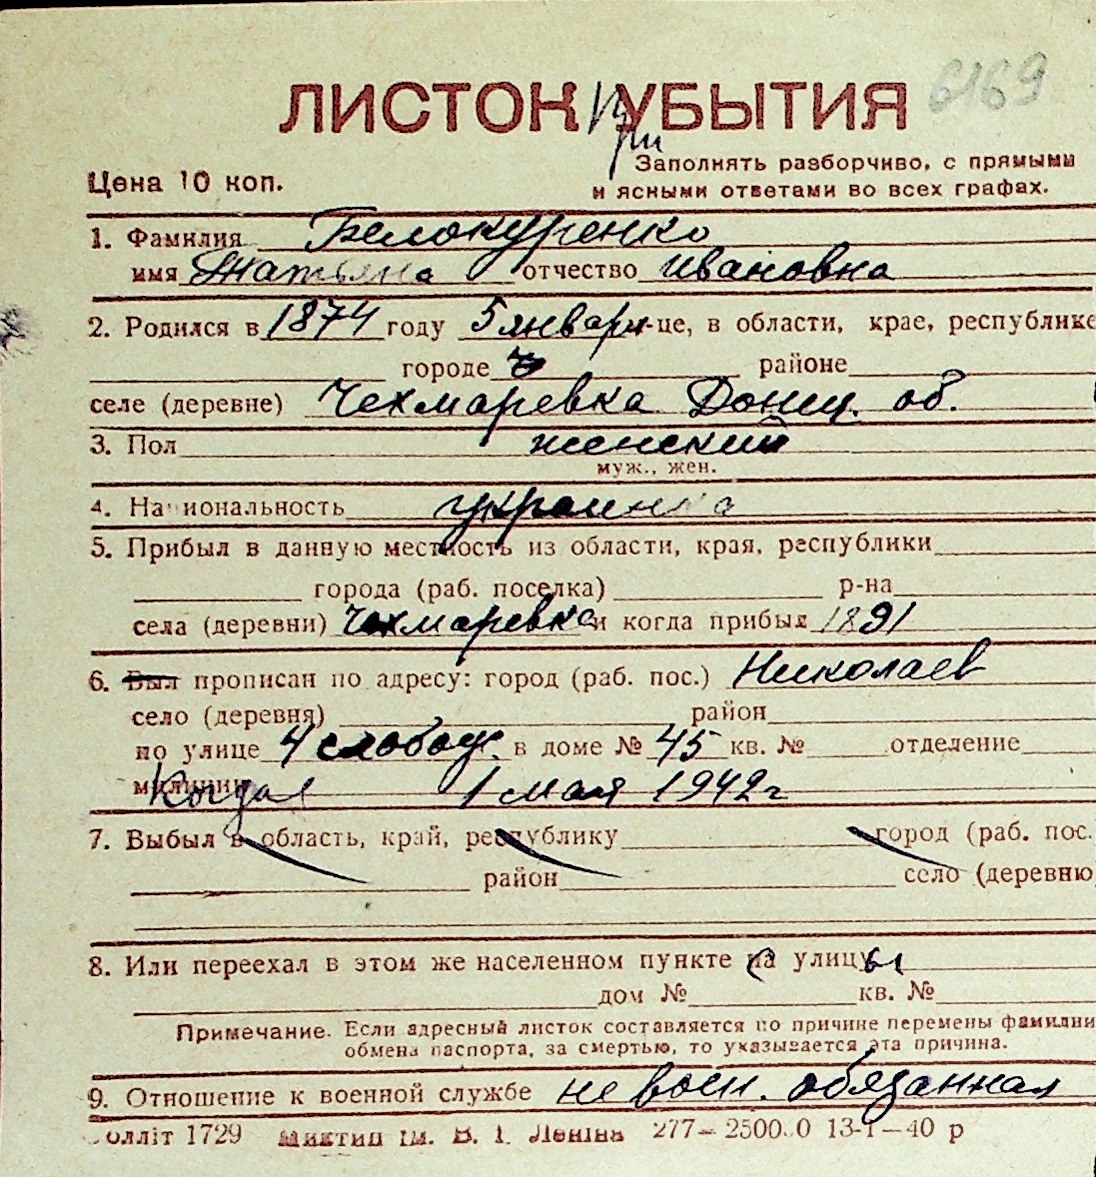 6169
ЛИСТОК УБЫТИЯ
При
Заполнять разборчиво, с прямыми
Цена 10 коп.
и ясными ответами во всех графах.
1. Фамилия Белокуренко
имя Татьяна отчество Ивановна
2. Родился в 1874 году 5 января-це, в области, крае, республике
городе районе
селе (деревне) Чехмаревка Донец. об.
3. Пол женский
муж., жен.
4. Национальность украинка
5. Прибыл в данную местность из области, края, республики
города (раб. поселка) р-на
села (деревни) Чехмаревка и когда прибыл 1891
6. Был прописан по адресу: город (раб. пос.) Николаев
село (деревня) район
по улице 4 слобод. в доме № 45 кв. № отделение
милиции Когда 1 мая 1942 г
7. Выбыл в область, край, республику город (раб. пос.
район село (деревню
8. Или переехал в этом же населенном пункте на улицу
дом № кв. №
Примечание. Если адресный листок составляется по причине перемены фамилии
обмена паспорта, за смертью, то указывается эта причина.
9. Отношение к военной службе не воен. обязанная
олліт 1729 ім. В. І. Леніна 277— 13-I—40 р